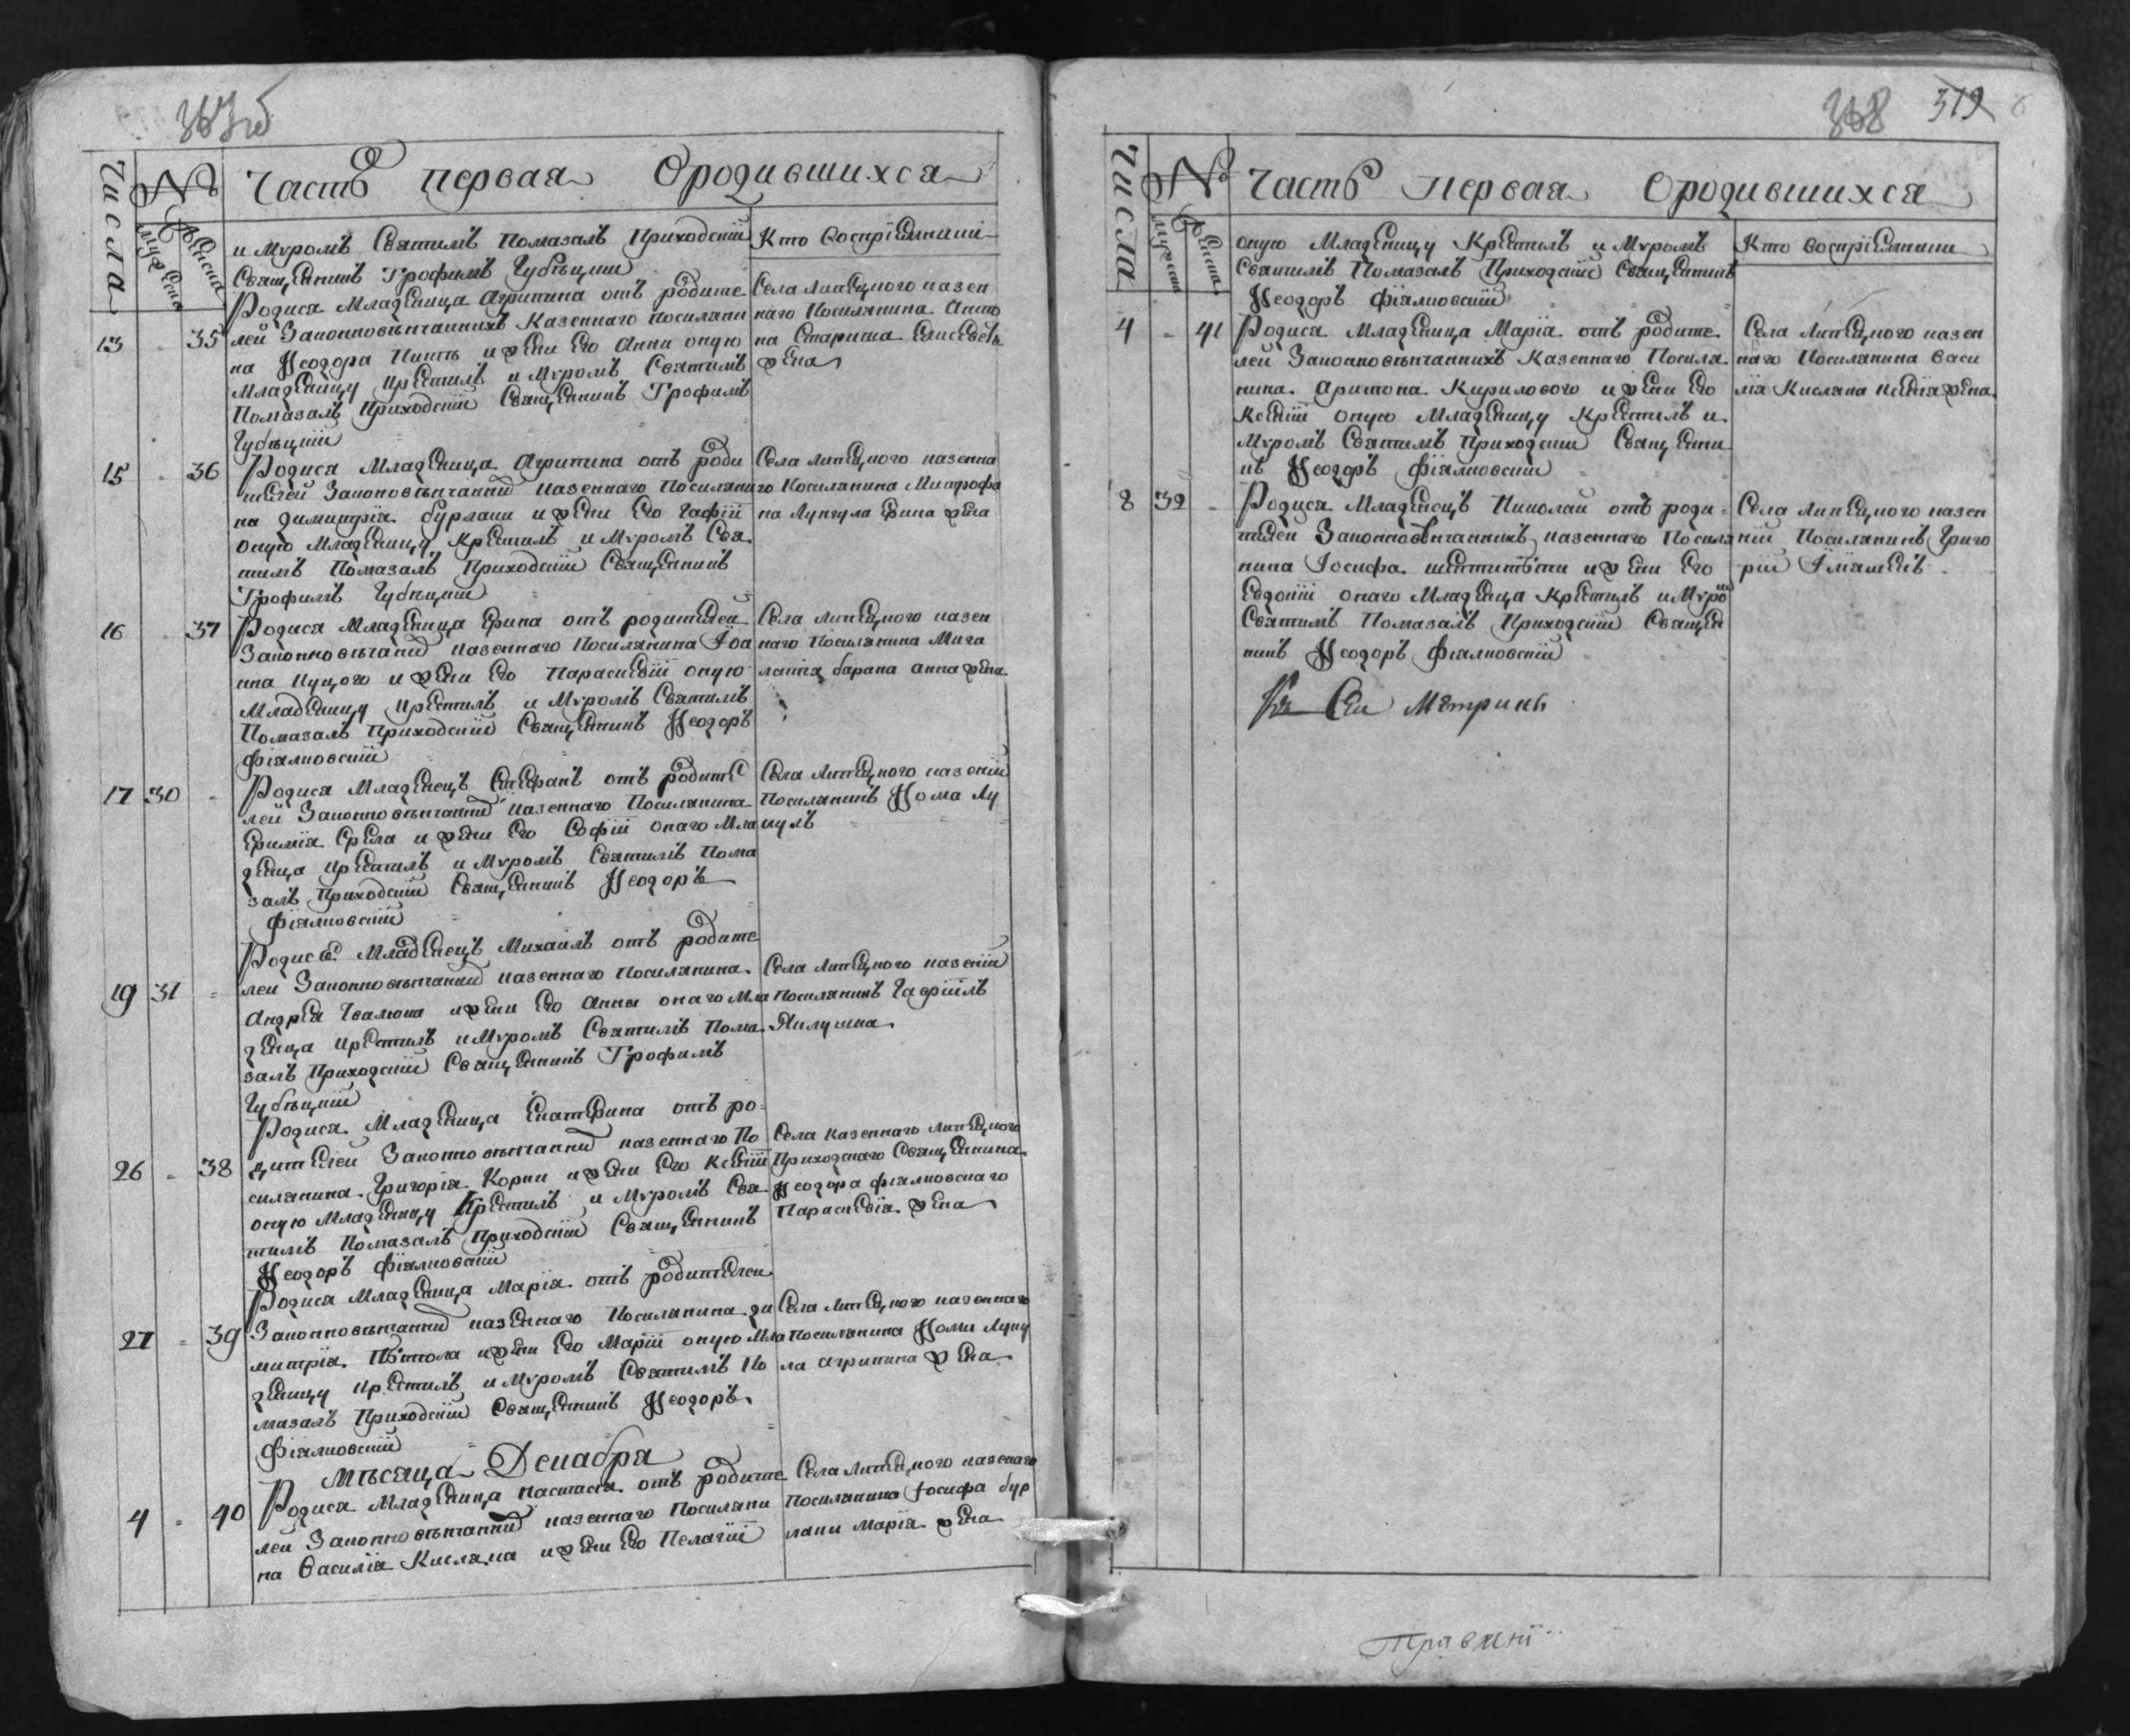 363 об
Числа
№
мужеска
женска
Часть первая О родившихся
и Мѵромъ Святымъ Помазалъ Приходскій
Священникъ Трофимъ Губѣцкій
Кто Воспріемники
13 - 35
Родися Младеница Агрипина отъ родите
лей Законновѣнчанныхъ Казеннаго Посиляни
на Ѳеодора Пинтъ и жены Его Анны оную
Младеницу крестилъ и Мѵромъ Святымъ
Помазалъ Приходскій Священникъ Трофимъ
Губѣцкій
Села Липецкого казен
наго Посилянина Анто
на Стариша Елисевеѳа
жена
15 - 36
Родися Младеница Агрипина отъ роди
телей Законовѣнчанны казеннаго Посиляни
на Димитрія Бурлаки и жены Его Гафіи
оную Младеницу Крестилъ и Мѵромъ Свя
тымъ Помазалъ Приходскій Священникъ
Трофимъ Губѣцкій
Села Липецкого казенна
го Посилянина Митрофа
на Лунгула Ерина жена
16 - 37
Родися Младеница Ерина отъ родителей
Законновѣчаны казеннаго Посилянина Іоа
нна Куцого и жены Его Параскевіи оную
Младеницу крестилъ и Мѵромъ Святымъ
Помазалъ Приходскій Священникъ Ѳеодоръ
Фіялковскій
Села Липецкого казен
наго Посилянина Мига
латія Барана Анна жена
17 30 -
Родися Младенецъ Стефанъ отъ родите
лей Законновѣнчанны казеннаго Посилянина
Еримія Срела и жены Его Софіи онаго Мла
денца крестилъ и Мѵромъ Святымъ Пома
залъ Приходскій Священникъ Ѳеодоръ
Фіялковскій
Села Липецкого казеный
Посилянинъ Ѳома Лу
кулъ
19 31 =
Родися Младенецъ Михаилъ отъ родите
лей Законновѣнчанны казеннаго Посилянина
Андрея Чвалюка и жены Его Анны онаго Мла
денца крестилъ и Мѵромъ Святымъ Пома
залъ Приходскій Священникъ Трофимъ
Губѣцкій
Села Липецкого казеный
Посилянинъ Гавріилъ
Якушка
26 - 38
Родися Младеница Екатерина отъ ро=
дителей Законновѣнчанны казеннаго По
силянина Григорія Корни и жены Его Ксеніи
оную Младеницу Крестилъ и Мѵромъ Свя
тымъ Помазалъ Приходскій Священникъ
Ѳеодоръ Фіялковскій
Села Казеннаго Липецкого
Приходскаго Священника
Ѳеодора Фіялковскаго
Параскевія жена
27 - 39
Родися Младеница Марія отъ родителей
Законновѣнчанны казеннаго Посилянина Ди
митрія Пѣткола и жены Его Маріи оную Мла
деницу крестилъ и Мѵромъ Святымъ По
мазалъ Приходскій Священникъ Ѳеодоръ
Фіялковскій
Села Липецкого казеннаго
Посилянина Ѳомы Луку
ла Агрипина жена
Мѣсяца Декабря
4 - 40
Родися Младеница Настасія отъ родите
лей Законновѣнчанны казеннаго Посиляни
на Василія Кисляка и жены Его Пелагіи
Села Липецкого казенаго
Посилянина Іосифа Бур
лаки Марія жена
368 319
Числа
№
мужеска
женска
Часть Первая О родившихся
оную Младеницу Крестилъ и Мѵромъ
Святымъ Помазалъ Приходскій Священникъ
Ѳеодоръ Фіялковскій
Кто воспріемники
4 - 41
Родися Младеница Марія отъ родите
лей Законновѣнчанныхъ Казеннаго Посиля
нина Аритона Кирилового и жены Его
Ксеніи оную Младеницу Крестилъ и
Мѵромъ Святымъ Приходскій Священни
къ Ѳеодоръ Фіялковскій
Села Липецкого казен
наго Посилянина Васи
лія Кисляка Ксенія жена
8 32 -
Родися Младенецъ Николай отъ роди=
телей Законновѣнчанныхъ казеннаго Посиля
нина Іосифа и жены Его
Евдокіи онаго Младенца Крестилъ и Мѵро
Святымъ Помазалъ Приходскій Священ
никъ Ѳеодоръ Фіялковскій
Села Липецкого казен
ній Посилянинъ Григо
рій
Сей Метрики